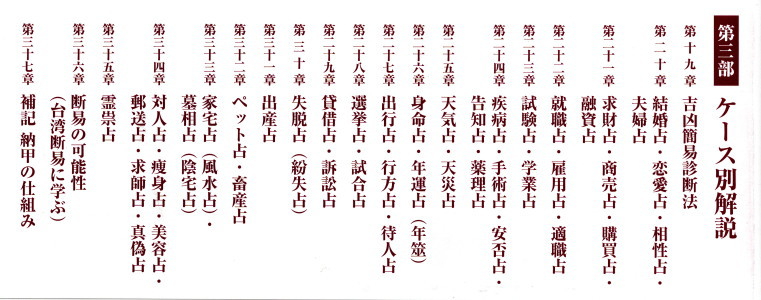 第三部 ケース別解説
第十九章 吉凶簡易診断法
第二十章 結婚占・恋愛占・相性占・
夫婦占
第二十一章 求財占・商売占・購買占・
融資占
第二十二章 就職占・雇用占・適職占
第二十三章 試験占・学業占
第二十四章 疾病占・手術占・安否占・
告知占・薬理占
第二十五章 天気占・天災占
第二十六章 身命占・年運占（年筮）
第二十七章 出行占・行方占・待人占
第二十八章 選挙占・試合占
第二十九章 貸借占・訴訟占
第三十章 失脱占（紛失占）
第三十一章 出産占
第三十二章 ペット占・畜産占
第三十三章 家宅占（風水占）・
墓相占（陰宅占）
第三十四章 対人占・痩身占・美容占・
郵送占・求師占・真偽占
第三十五章 霊祟占
第三十六章 断易の可能性
（台湾断易に学ぶ）
第三十七章 補記 納甲の仕組み